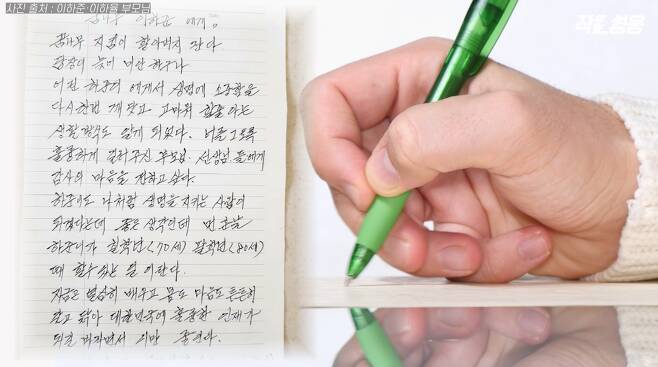 사진 출처 : 이하준·이하율 부모님
작은영웅
꿈나무 이하준 에게!
꿈나무 지킴이 할아버지 란다
답장이 늦어 미안 하구나
어린 하준이 에게서 생명에 소중함을
다시한번 깨닫고 고마워 할줄 아는
생활 태도 알게 되었다. 너를 그토록
훌륭하게 길러주신 부모님. 선생님 들에게
감사의 마음을 전하고 싶다.
하준이도 나처럼 생명을 지키는 사람이
되겠다는데 좋은 생각인데 먼 훗날
하준이가 칠학년(70세) 팔학년(80세)
때 할수 있는 일 이란다.
지금은 열심히 배우고 몸도 마음도 튼튼히
갈고 닦아 대한민국에 훌륭한 인재가
되길 바라면서 이만 줄인다.